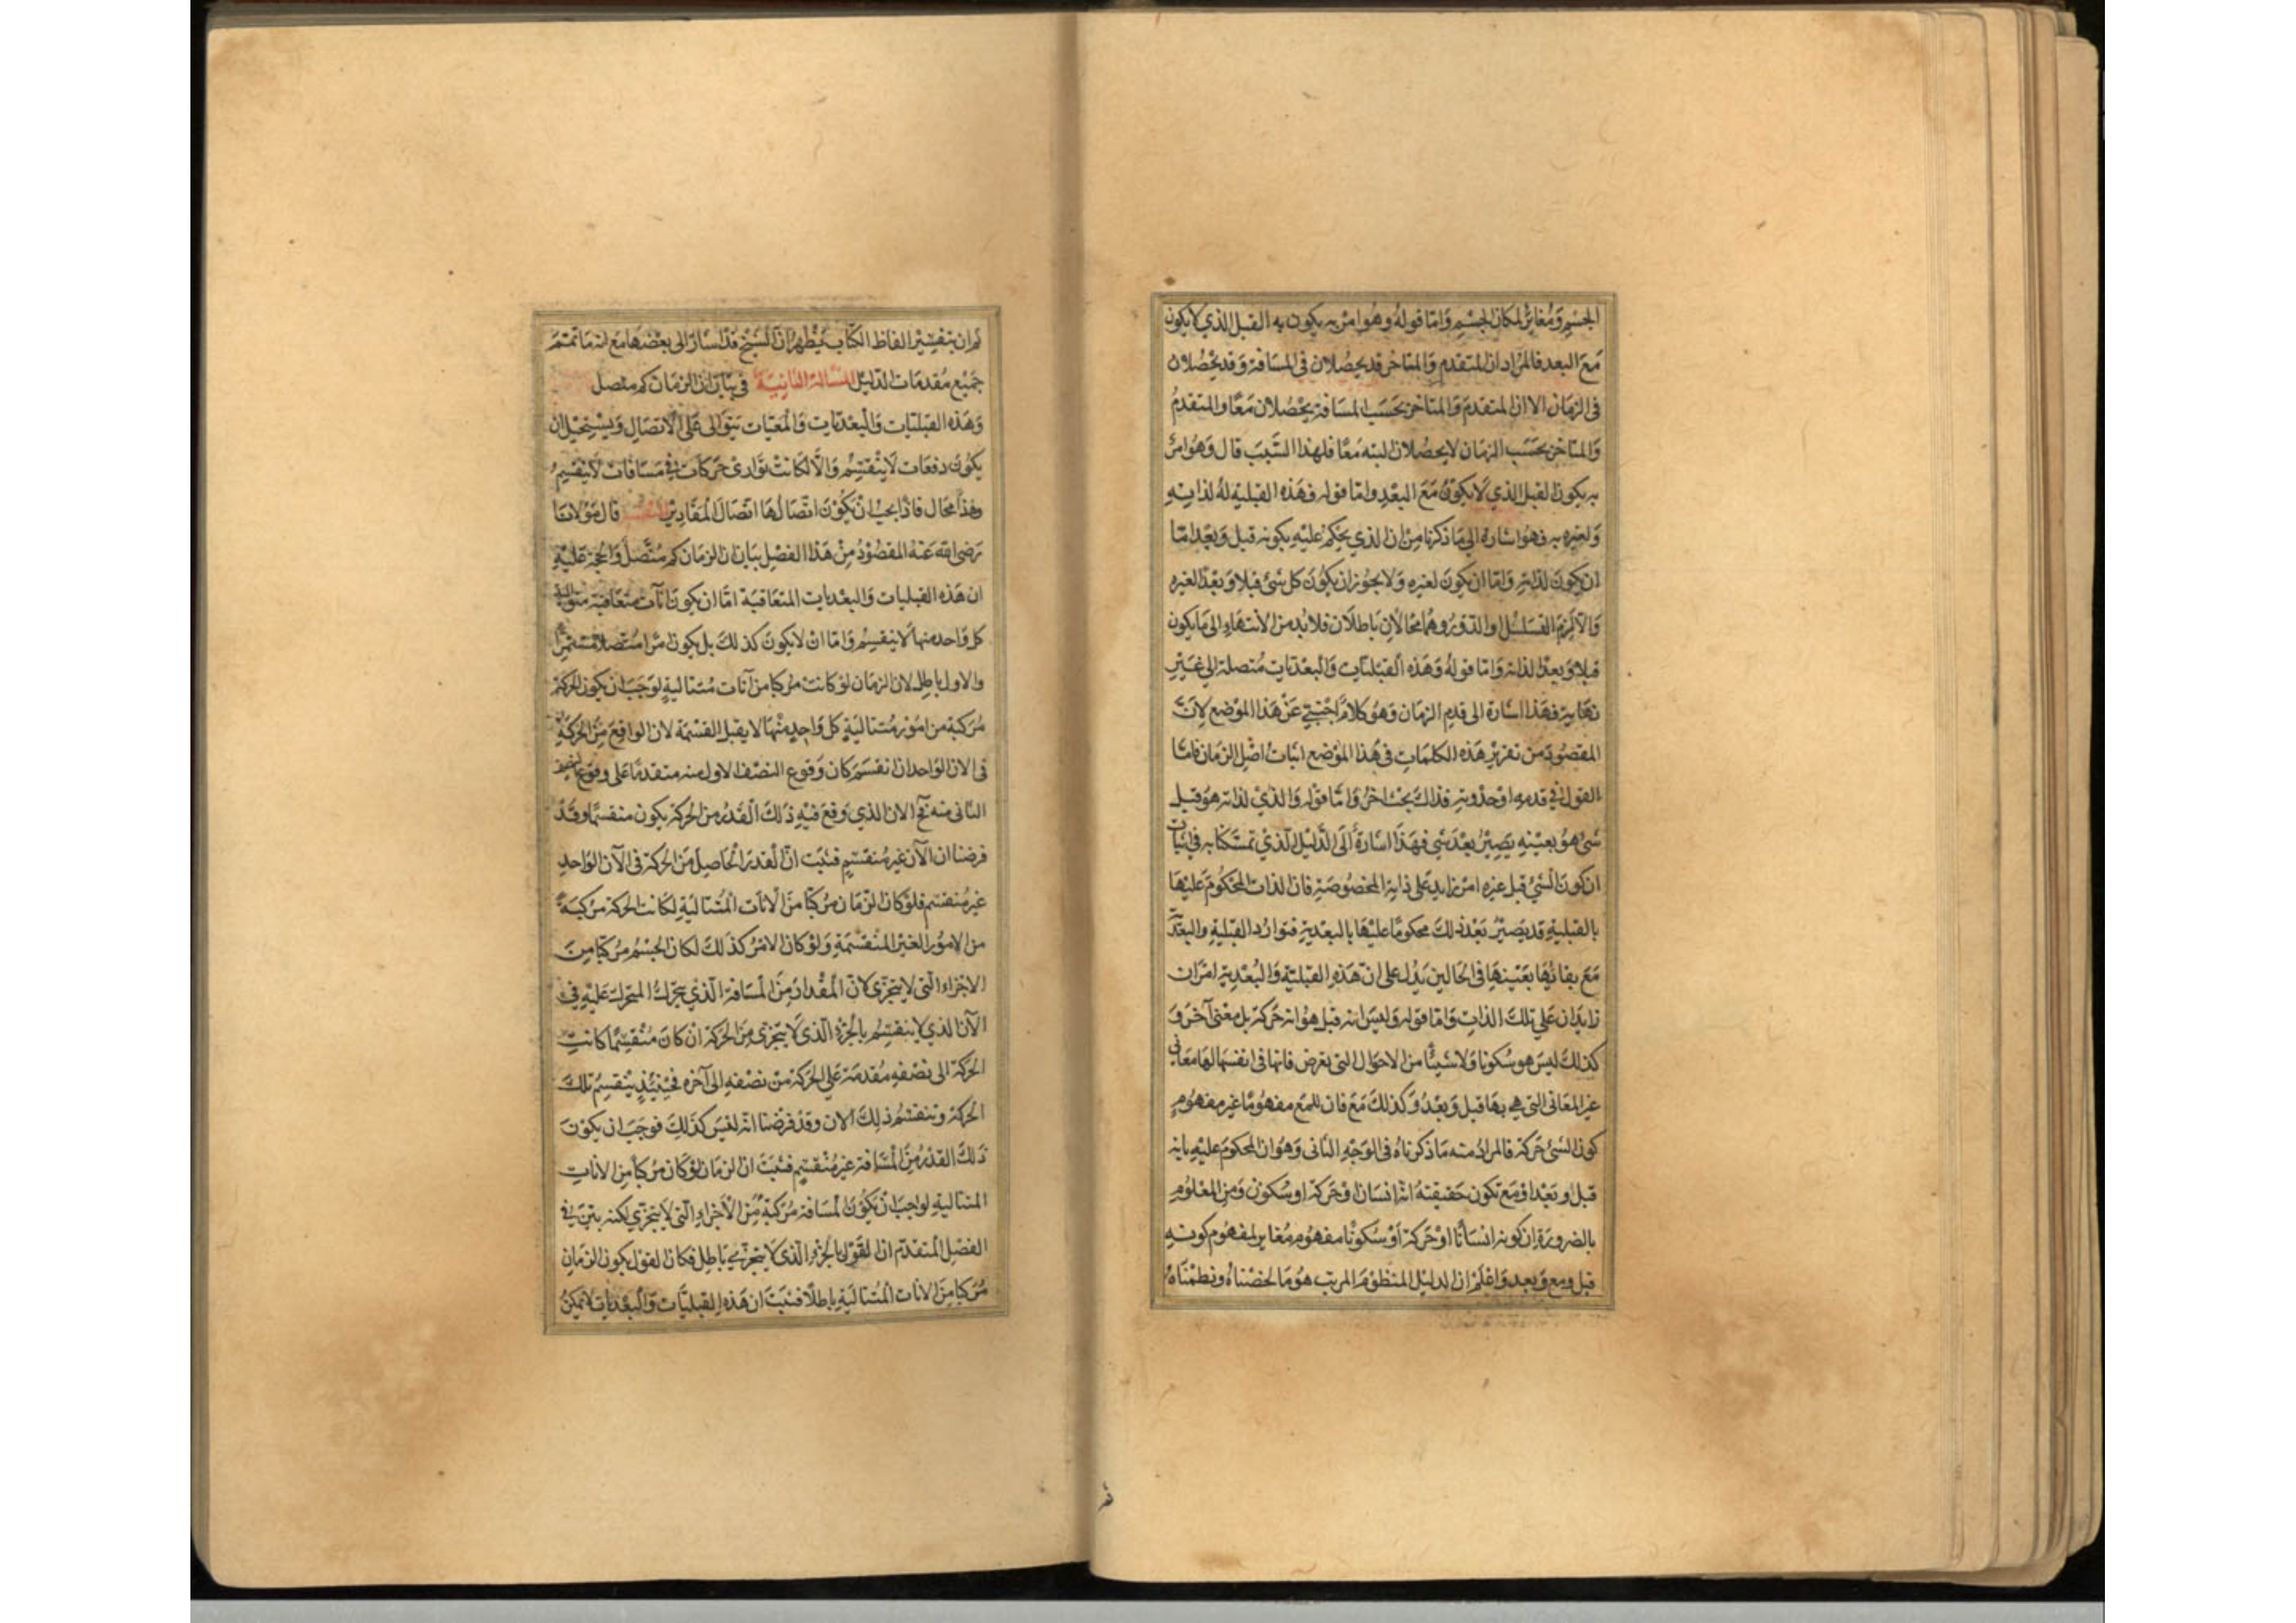 الجسم ومغاير لمكان الجسم واما قوله وهو امر به يكون به القبل الذي لا يكون
مع البعد فالمراد ان المتقدم والمتاخر قد يحصلان في المسافة وقد يحصلان
في الزمان الا ان المتقدم والمتاخر بحسب المسافة يحصلان معا والمتقدم
والمتاخر بحسب الزمان لا يحصلان البته معا فلهذا السبب قال وهو امر
به يكون القبل الذي لا يكون مع البعد واما قوله فهذه القبلية له لذاته
ولغيره به فهو اشارة الى ما ذكرنا من ان الذي يحكم عليه بكونه قبل وبعد اما
ان يكون لذاته واما ان يكون لغيره ولا يجوز ان يكون كل شئ قبلا وبعدا لغيره
والا لزم التسلسل او الدور وهما محالان باطلان فلا بد من الانتهاء الى ما يكون
قبلا وبعدا لذاته واما قوله وهذه القبليات والبعديات متصلة الى غير
نهاية فهذا اشارة الى قدم الزمان وهو كلام اجنبي عن هذا الموضع لان
المقصود من تقرير هذه الكلمات في هذا الموضع اثبات اصل الزمان فاما
القول في قدمه او حدوثه فذاك بحث اخر واما قوله والذي لذاته هو قبل
شئ هو بعينه يصير بعد شئ فهذا اشارة الى الدليل الذي تمسكنا به في اثبات
ان كون الشئ قبل غيره امر زايد على ذاته المخصوصة فان الذات المحكوم عليها
بالقبلية قد يصير بعد ذلك محكوما عليها بالبعدية فتوارد القبلية والبعدية
مع بقائها بعينها في الحالين يدل على ان هذه القبلية والبعدية امران
زايدان على تلك الذات واما قوله وليس انه قبل هو انه حركة بل معنى آخر و
كذلك ليس هو سكونا ولا شيئا من الاحوال التي تعرض فانها في انفسها لها معاني
غير المعاني التي هي بها قبل وبعد وكذلك مع فان للمع مفهوما غير مفهوم
كون الشئ حركة فالمراد منه ما ذكرناه في الوجه الثاني وهو ان المحكوم عليه بانه
قبل وبعد او مع تكون حقيقته انه انسان او حركة او سكون ومن المعلوم
بالضرورة ان كونه انسانا او حركة او سكونا مفهوم مغاير لمفهوم كونه
قبل ومع وبعد واعلم ان الدليل المنظوم المرتب هو ما لخصناه ونظمناه
ثم ان بتفسير الفاظ الكتاب يظهر ان الشيخ قد اشار الى بعضها مع انه ما تمم
جميع مقدمات الدليل المسالة الثانية في بيان ان الزمان كم متصل
وهذه القبليات والبعديات والمعيات يتوالى على الاتصال ويستحيل ان
يكون دفعات لا ينقسم والا لكانت توازي حركات في مسافات لا ينقسم
وهذا محال فاذا يجب ان يكون اتصالها اتصال المقادير التفسير قال مولانا
رضى الله عنه المقصود من هذا الفصل بيان ان الزمان كم متصل والحجة عليه
ان هذه القبليات والبعديات المتعاقبة اما ان يكون انات متعاقبة متوالية
كل واحد منها لا ينقسم واما ان لا يكون كذلك بل يكون امرا متصلا مستمرا
والاول باطل لان الزمان لو كانت مركبا من آنات متتالية لوجب ان يكون الحركة
مركبة من امور متتالية كل واحد منها لا يقبل القسمة لان الواقع من الحركة
في الان الواحد ان انقسم كان وقوع النصف الاول منه متقدما على وقوع النصف
الثاني منه فح الان الذي وقع فيه ذلك القدر من الحركة يكون منقسما وقد
فرضنا ان الآن غير منقسم فثبت ان القدر الحاصل من الحركة في الآن الواحد
غير منقسم فلو كان الزمان مركبا من الانات المتتالية لكانت الحركة مركبة
من الامور الغير المنقسمة ولو كان الامر كذلك لكان الجسم مركبا من
الاجزاء التي لا يتجزى لان المقدار من المسافة الذي يتحرك المتحرك عليه في
الآن الذي لا ينقسم بالجزء الذي لا يتجزى من الحركة ان كان منقسما كانت
الحركة الى نصفه مقدمة على الحركة من نصفه الى آخره فحينئذ ينقسم تلك
الحركة وينقسم ذلك الان وقد فرضنا انه ليس كذلك فوجب ان يكون
ذلك القدر من المسافة غير منقسم فثبت ان الزمان لو كان مركبا من الانات
المتتالية لوجب ان يكون المسافة مركبة من الاجزاء التي لا يتجزي لكنه بين في
الفصل المتقدم ان القول بالجزء الذي لا يتجزي باطل فكان القول بكون الزمان
مركبا من الانات المتتالية باطلا فثبت ان هذه القبليات والبعديات لا يمكن